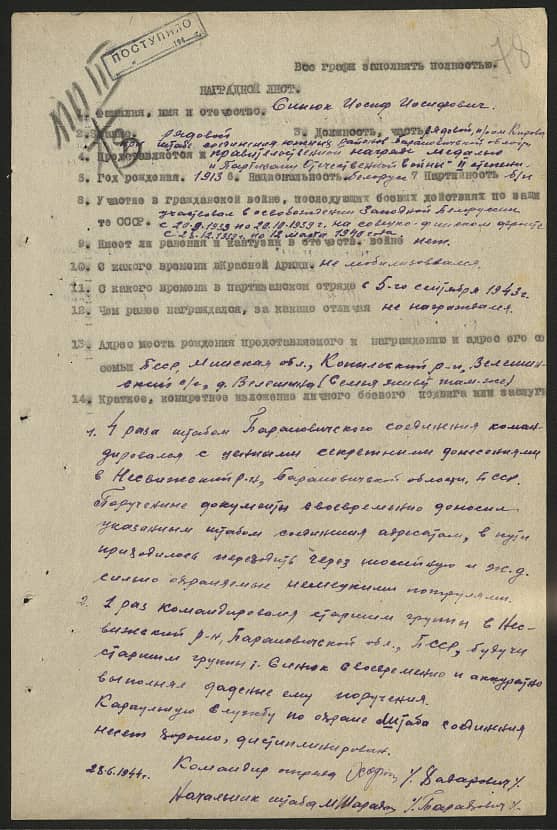 ПОСТУПИЛО
78
Все графы заполнять полностью.
НАГРАДНОЙ ЛИСТ.
1. Фамилия, имя и отчество. Синюк Иосиф Иосифович.
2. Звание. рядовой 3. Должность, часть рядовой,
при штабе соединения южных районов Барановичской области
4. Представляется к правительственной награде медалью
"Партизан Отечественной войны" II степени
5. Год рождения. 1913 6. Национальность белорус 7 Партийность б/п
8. Участие в Гражданской войне, последующих боевых действиях по защи
участвовал в освобождении Западной Белоруссии
те СССР. с 20.9.1939 по 20.10.1939 г. на советско-финском фронте
с 25.12.1939 г. по 12 марта 1940 года
9. Имеет ли ранения и контузии в отечеств. войне нет.
10. С какого времени вКрасной Армии. не мобилизовался.
11. С какого времени в партизанском отряде с 5-го сентября 1943 г.
12. Чем ранее награждался, за какие отличия не награждался.
13. Адрес места рождения представляемого к награждению и адрес его
семьи БССР, Минская обл., Копыльский р-н,
с/с, д. (Семья живет там-же)
14. Краткое, конкретное изложение личного боевого подвига или заслуги
1. 4 раза штабом Барановичского соединения коман-
дировался с ценными секретными донесениями
в Несвижский р-н, Барановичской области, БССР.
Порученные документы своевременно доносил
указанным штабом соединения адресатам, в пути
приходилось переходить через шоссейную и ж.д.
сильно охраняемые немецкими патрулями.
2. 1 раз командировался старшим группы в Нес-
вижский р-н, Барановичской обл., БССР, будучи
старшим группы т. Синюк своевременно и аккуратно
выполнял даденые ему поручения.
Караульную службу по охране штаба соединения
несет хорошо, дисциплинирован.
Командир отряда
28.6.1944г.
Начальник штаба